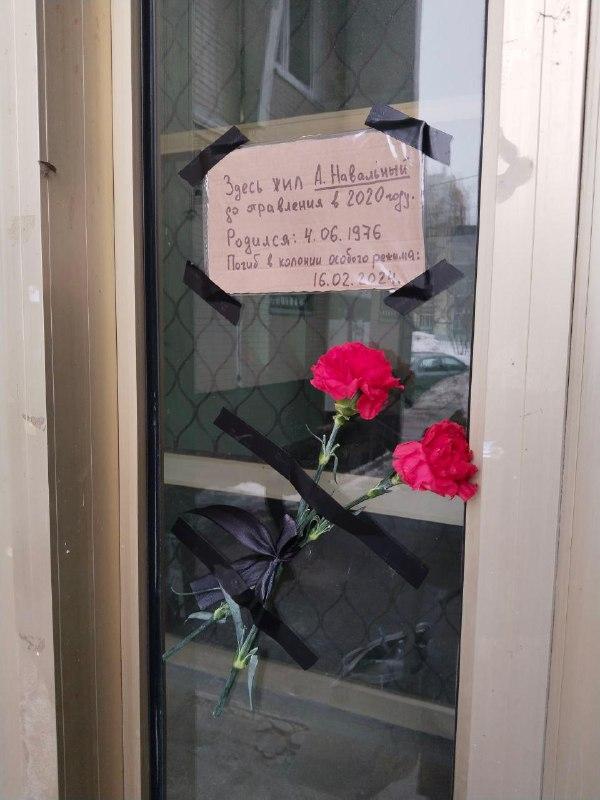 Здесь жил А. Навальный
до отравления в 2020 году.
Родился: 4.06.1976
Погиб в колонии особого режима:
16.02.2024.